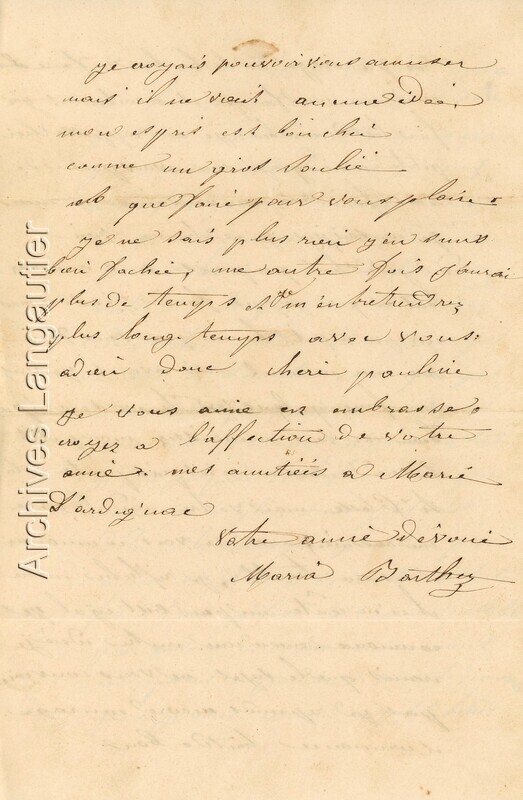 je croyais pouvoir vous amuser
mais il ne voit aucune idée,
mon espris est bouchée
comme un gros soulié
que faire pour vous plaire
je ne sais plus rien j'en suis
bien fachée, une autre fois j'aurai
plus de temps et m'entretendrez
plus long-temps avec vous
adieu donc cheri pauline
je vous aime et embrasse
croyez a l'affection de votre
amie. mes amitiées a Marie
D'ardignac
votre amie dévoué
Maria Barthez
Archives Langautier